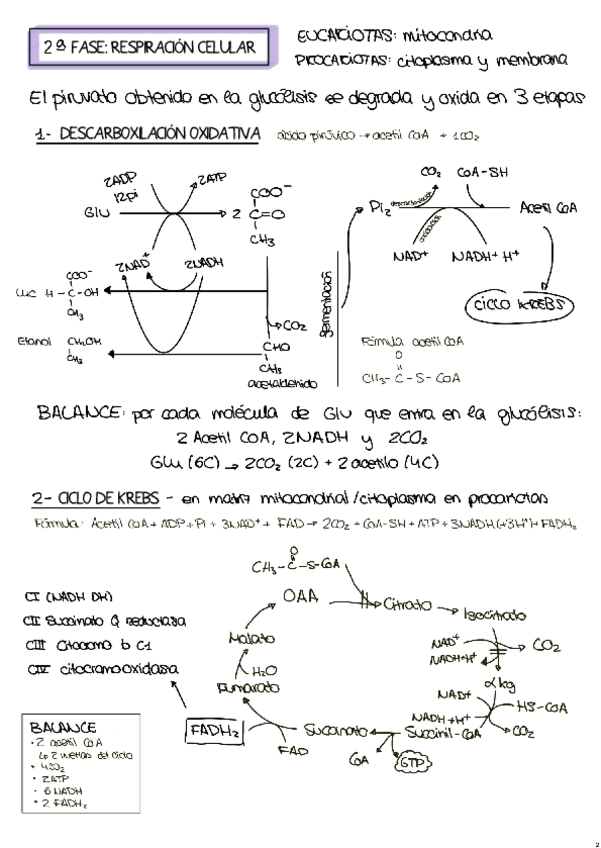 2ª FASE: RESPIRACIÓN CELULAR
EUCARIOTAS: mitocondria
PROCARIOTAS: citoplasma y membrana
El piruvato obtenido en la glucólisis se degrada y oxida en 3 etapas
1- DESCARBOXILACIÓN OXIDATIVA ácido pirúvico → acetil CoA + 1CO₂
2ADP 2ATP
12Pi
Glu 2 COO⁻
C=O
CH₃
2NAD⁺ 2NADH
COO⁻
H-C-OH
CH₃
CO₂
Etanol CH₂OH
CH₃
CHO
CH₃
acetaldehido
fermentación
CO₂ CoA-SH
Pi₂ descarboxilación Acetil CoA
oxidación
NAD⁺ NADH + H⁺
CICLO KREBS
Fórmula acetil CoA
O
CH₃-C-S-CoA
BALANCE: por cada molécula de Glu que entra en la glucólisis:
2 Acetil CoA, 2NADH y 2CO₂
Glu (6C) → 2CO₂ (2C) + 2 acetilo (4C)
2- CICLO DE KREBS - en matriz mitocondrial/citoplasma en procariotas
Fórmula: Acetil CoA + ADP + Pi + 3NAD⁺ + FAD → 2CO₂ + CoA-SH + ATP + 3NADH (+3H⁺) + FADH₂
O
CH₃-C-S-CoA
OAA Citrato Isocitrato
CI (NADH DH)
CII Succinato Q reductasa
CIII Citocromo b C1
CIV citocromooxidasa
Malato
H₂O
Fumarato
NAD⁺
NADH+H⁺
CO₂
αkg
NAD⁺
HS-CoA
NADH+H⁺
CO₂
FADH₂ Succinato Succinil-CoA
FAD
CoA GTP
BALANCE
· 2 acetil CoA
↳ 2 vueltas del ciclo
· 4CO₂
· 2ATP
· 6 NADH
· 2 FADH₂
2